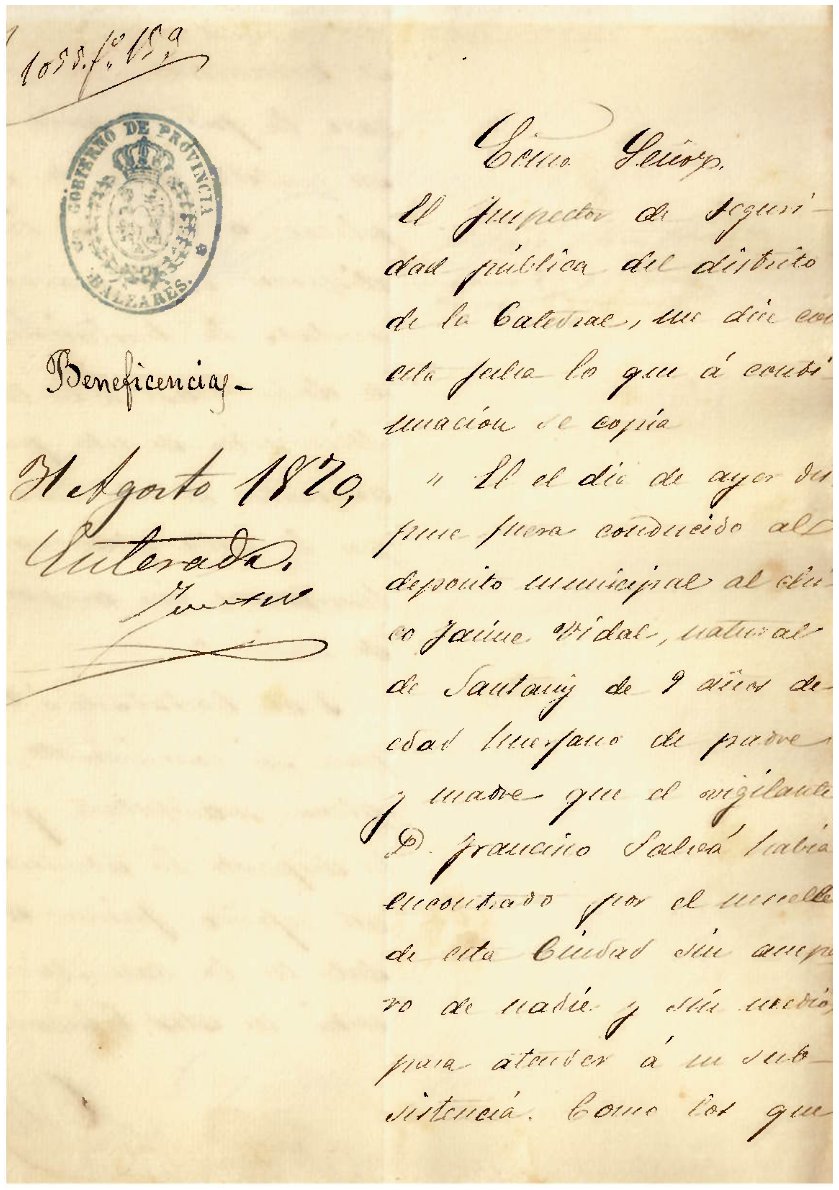 1055. fº 159
GOBIERNO DE PROVINCIA
BALEARES.
Beneficencia
31 Agosto 1870,
Enterada.
Ecmo Señor.
El Inspector de seguri-
dad pública del distrito
de la Catedral, me dice con
esta fecha lo que á conti
nuación se copia
" El el dia de ayer dis
puse fuera conducido al
deposito municipal al chi
co Jaime Vidal, natural
de Santañy de 9 años de
edad huerfano de padre
y madre que el vigilante
D. Francisco Salvá había
encontrado por el muelle
de esta Ciudad sin ampa
ro de nadie y sin medios
para atender á su sub-
sistencia. Como los que